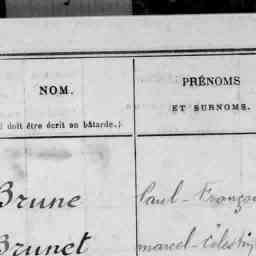 NOM.
PRÉNOMS
ET SURNOMS.
doit être écrit en bâtarde.)
Brune
Paul - François
Brunet
marcel - Célestin